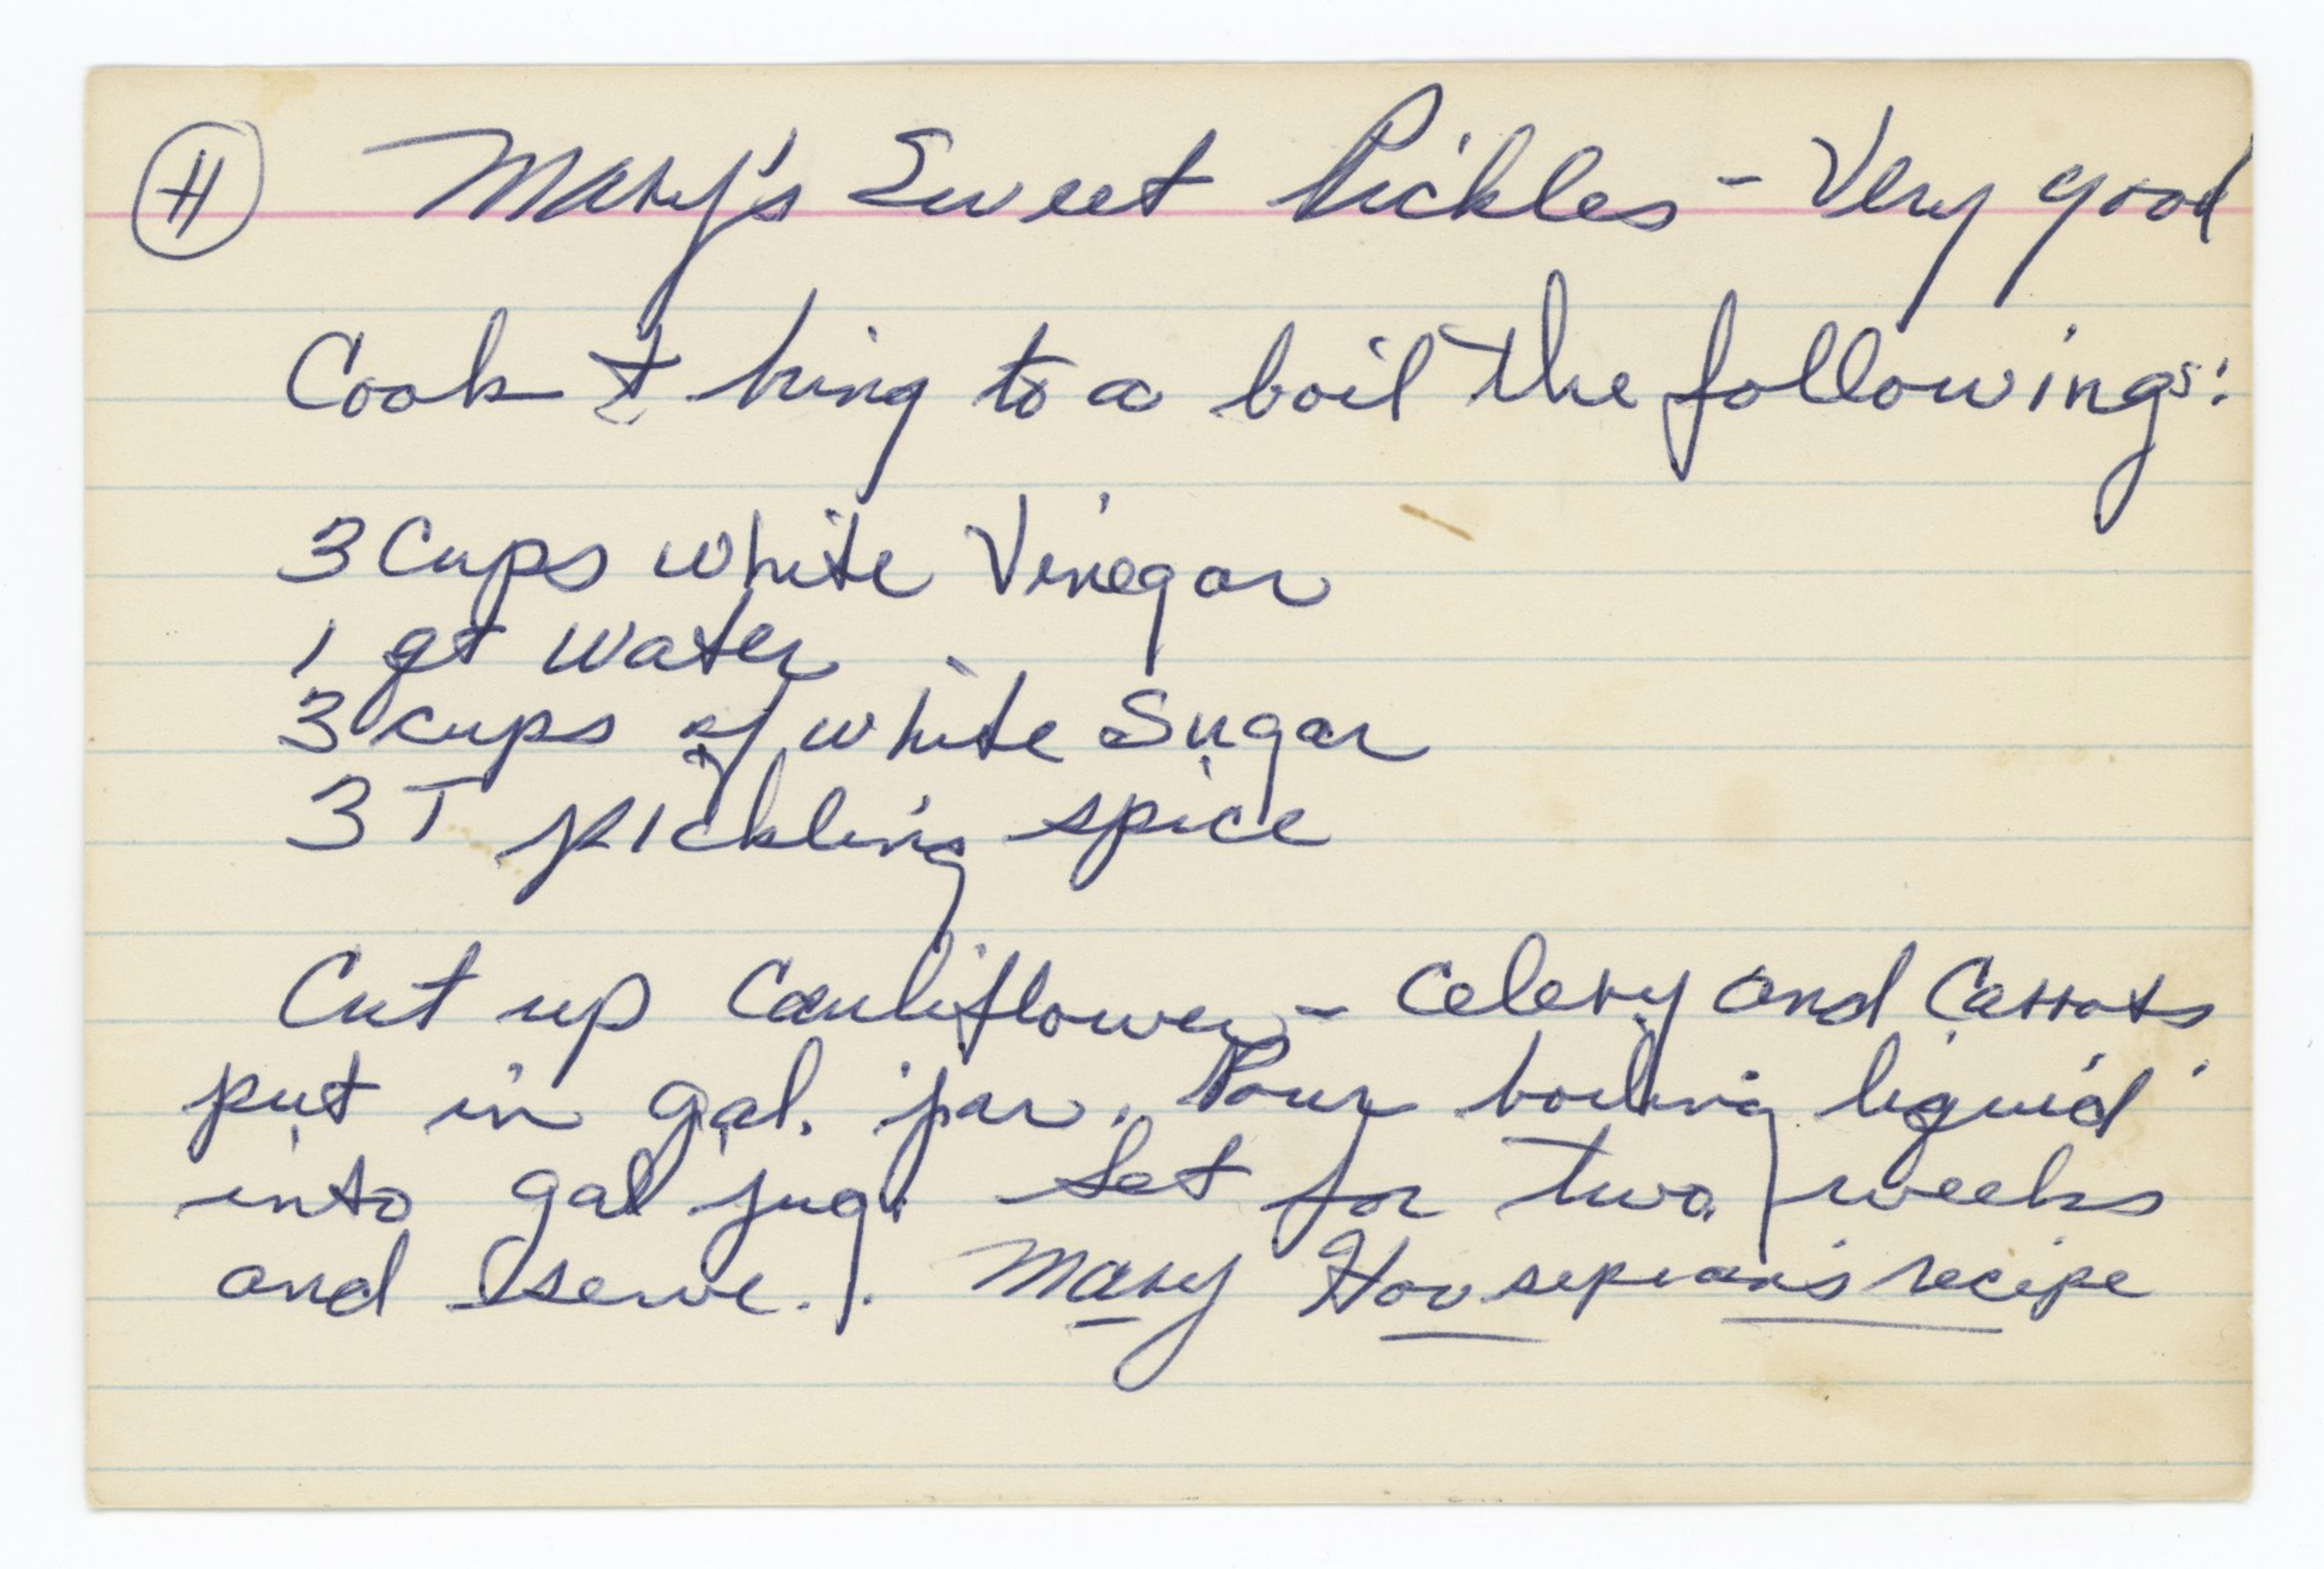 H Mary's Sweet Pickles - Very good
Cook & bring to a boil the followings:
3 Cups white Vinegar
1 qt water
3 cups of white Sugar
3 T pickling spice
Cut up Cauliflower - Celery and Carrots
put in gal. jar. Pour boiling liquid
into gal jug. Set for two weeks
and serve. Mary Hovsepian's recipe